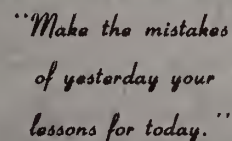 "Make the mistakes
of yesterday your
lessons for today."